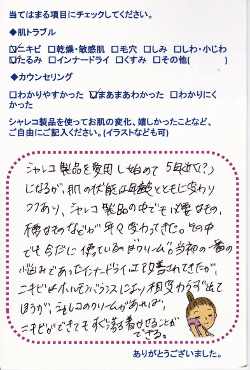 当てはまる項目にチェックしてください。
◆肌トラブル
☑ニキビ □乾燥・敏感肌 □毛穴 □しみ □しわ・小じわ
☑たるみ □インナードライ □くすみ □その他( )
◆カウンセリング
□わかりやすかった ☑まあまあわかった □わかりにく
かった
シャレコ製品を使ってお肌の変化、嬉しかったことなど、
ご自由にご記入ください。(イラストなども可)
シャレコ製品を愛用し始めて 5年近く(?)
になるが、肌の状態は年齢とともに変わり
つつあり、シャレコ製品の中でも必要なもの、
様なものなどが年々変わってきた。その中
でも今だに使っているのはクリーム。当初の一番の
悩みであったインナードライは改善されてきたが、
ニキビはホルモンバランスにより相変わらず出て
ほうが、シャレコのクリームがあれば、
ニキビができてもすぐ落ち着かせることが
できる。
ありがとうございました。